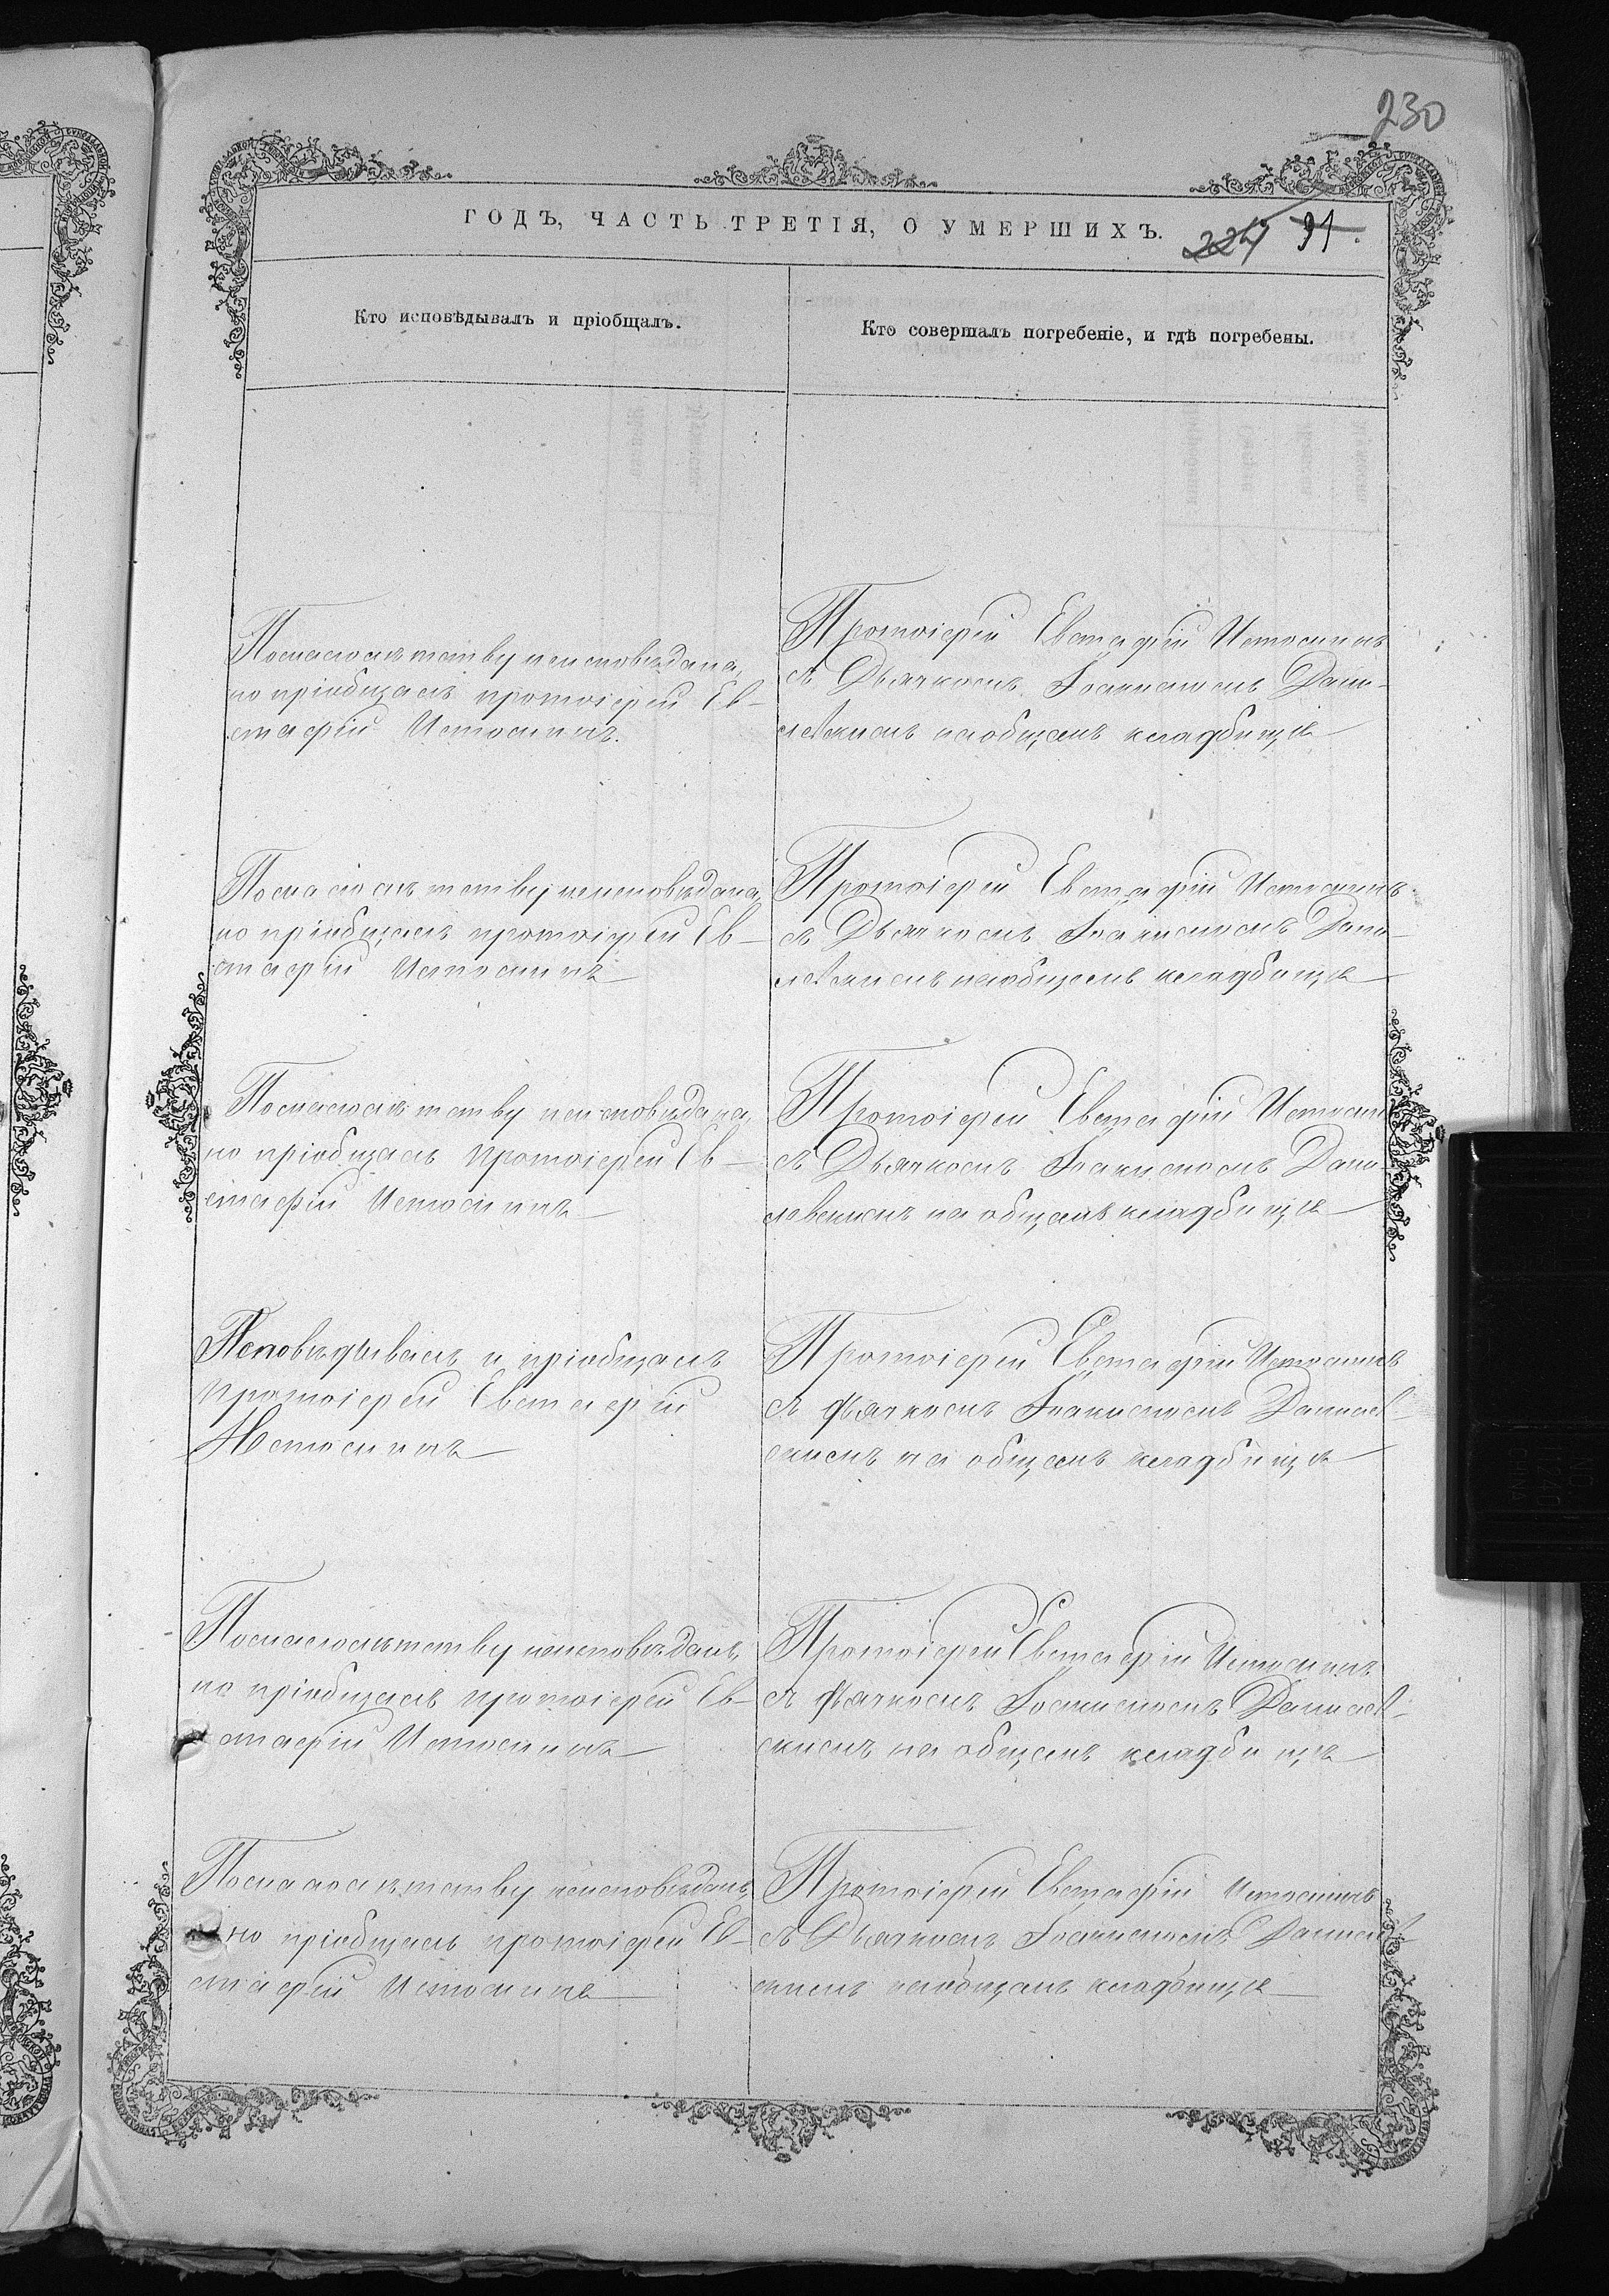 230
ГОДЪ, ЧАСТЬ ТРЕТІЯ, О УМЕРШИХЪ. 224 91.
Кто исповѣдывалъ и пріобщалъ.
Кто совершалъ погребеніе, и гдѣ погребены.
По малолѣтству неисповѣдана,
но пріобщалъ протоіерей Ев-
стафій Истоминъ.
Протоіерей Евстафій Истоминъ
съ Дьячкомъ Іоакимомъ Дани-
левскимъ на общемъ кладбищѣ
По малолѣтству неисповѣдана,
но пріобщалъ протоіерей Ев-
стафій Истоминъ
Протоіерей Евстафій Истоминъ
съ Дьячкомъ Іоакимомъ Дани-
левскимъ на общемъ кладбищѣ
По малолѣтству неисповѣдана,
но пріобщалъ протоіерей Ев-
стафій Истоминъ
Протоіерей Евстафій Истомин
съ Дьячкомъ Іоакимомъ Дани-
левскимъ на общемъ кладбищѣ
Исповѣдывалъ и пріобщалъ
протоіерей Евстафій
Истоминъ
Протоіерей Евстафій Истоминъ
съ дьячкомъ Іоакимомъ Данилев-
скимъ на общемъ кладбищѣ
По малолѣтству неисповѣданъ,
но пріобщалъ протоіерей Ев-
стафій Истоминъ
Протоіерей Евстафій Истоминъ
съ дьячкомъ Іоакимомъ Данилев-
скимъ на общемъ кладбищѣ
По малолѣтству неисповѣданъ,
но пріобщалъ протоіерей Ев-
стафій Истоминъ
Протоіерей Евстафій Истоминъ
съ Дьячкомъ Іоакимомъ Данилев-
скимъ на общемъ кладбищѣ